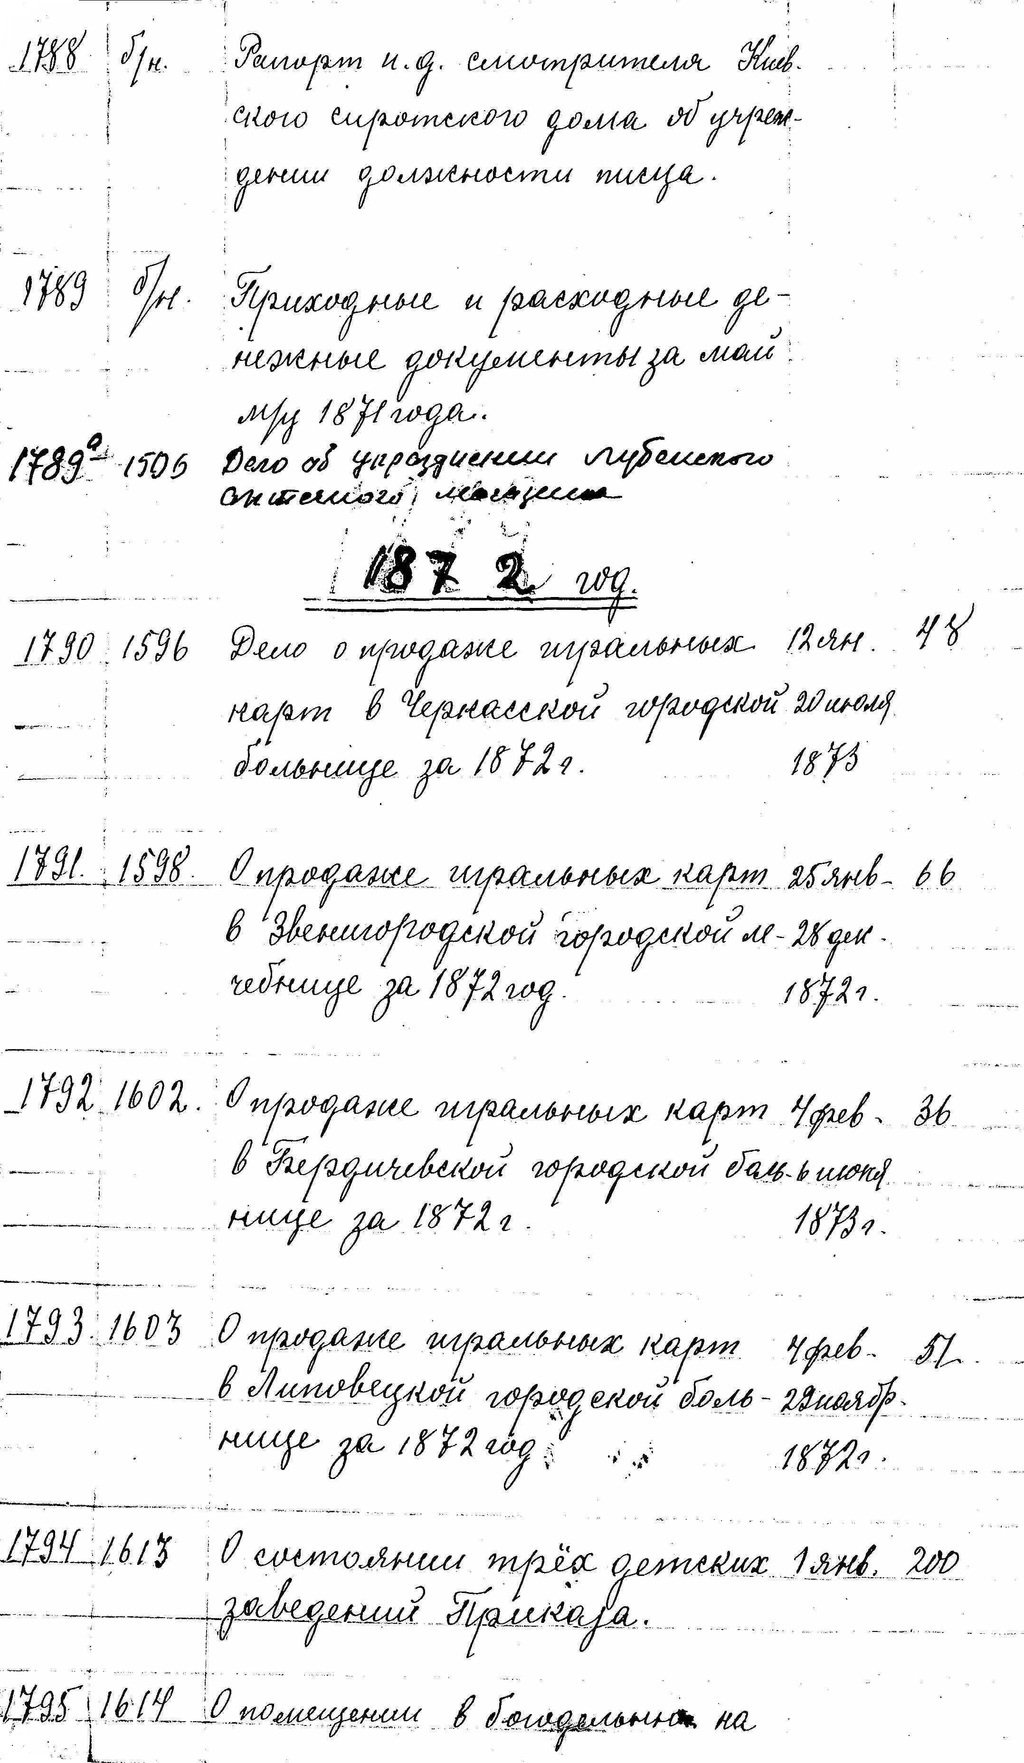 1788 б/н. Рапорт и.д. смотрителя Киев-
ского сиротского дома об учреж-
дении должности писца.
1789 б/н. Приходные и расходные де-
нежные документы за май
м/ц 1871 года.
1789а 1506 Дело об упразднении Лубенского
1872 год.
1790 1596 Дело о продаже игральных 12 ян. 48
карт в Черкасской городской 20 июля
больнице за 1872 г. 1873
1791. 1598. О продаже игральных карт 25 янв- 66
в Звенигородской городской ле- 28 дек.
чебнице за 1872 год. 1872 г.
1792 1602. О продаже игральных карт 4 фев- 36
в Бердичевской городской боль- 6 июня
нице за 1872 г. 1873 г.
1793. 1603 О продаже игральных карт 4 фев- 51.
в Липовецкой городской боль- 29 ноябр-
нице за 1872 год. 1872 г.
1794 1613 О состоянии трёх детских 1 янв. 200
заведений Приказа.
1795 1614 О помещении в богодельню на